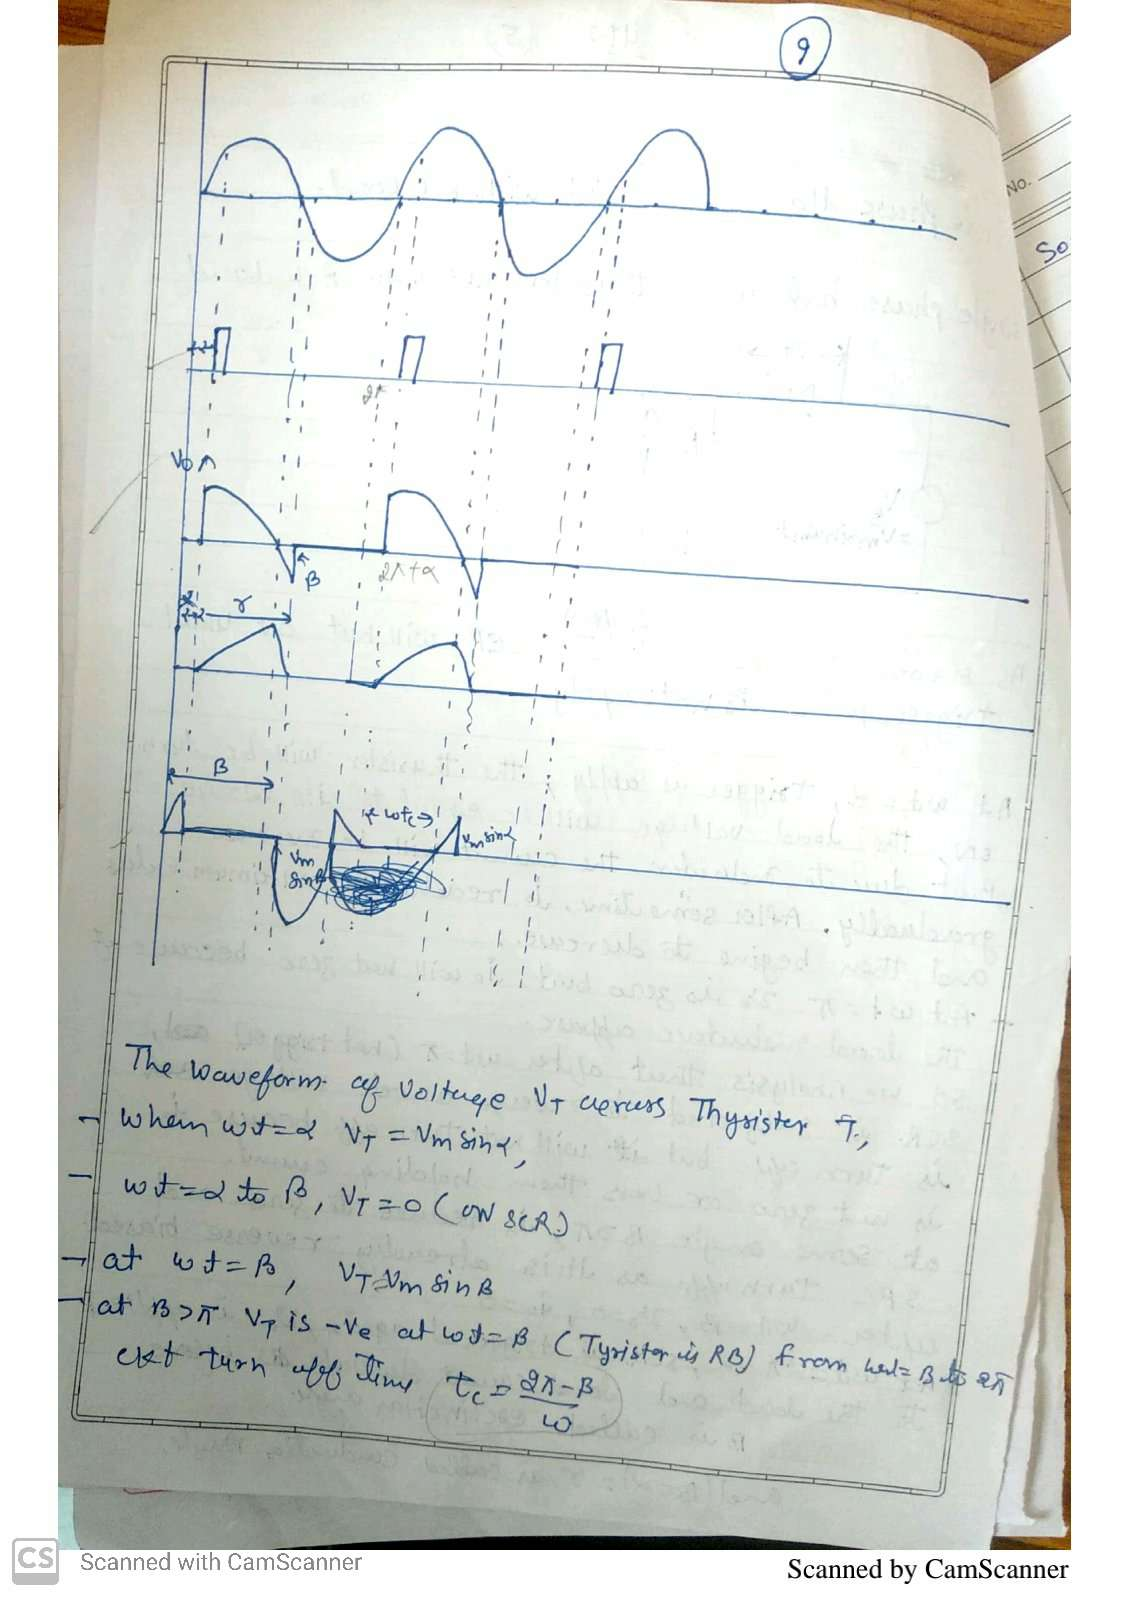 9
No.
So
α
2π
Vo
β
2π+α
α
γ
β
ωtc
Vm sinα
Vm
sinβ
The waveform of voltage VT across Thyristor T,
- when ωt=α VT = Vm sinα,
- ωt=α to β, VT=0 (ON SCR)
- at ωt=β, VT=Vm sinβ
- at β>π VT is -ve at ωt=β (Tyristor is RB) from ωt=β to 2π
ckt turn off Time tc = 2π-β
ω
CS Scanned with CamScanner
Scanned by CamScanner